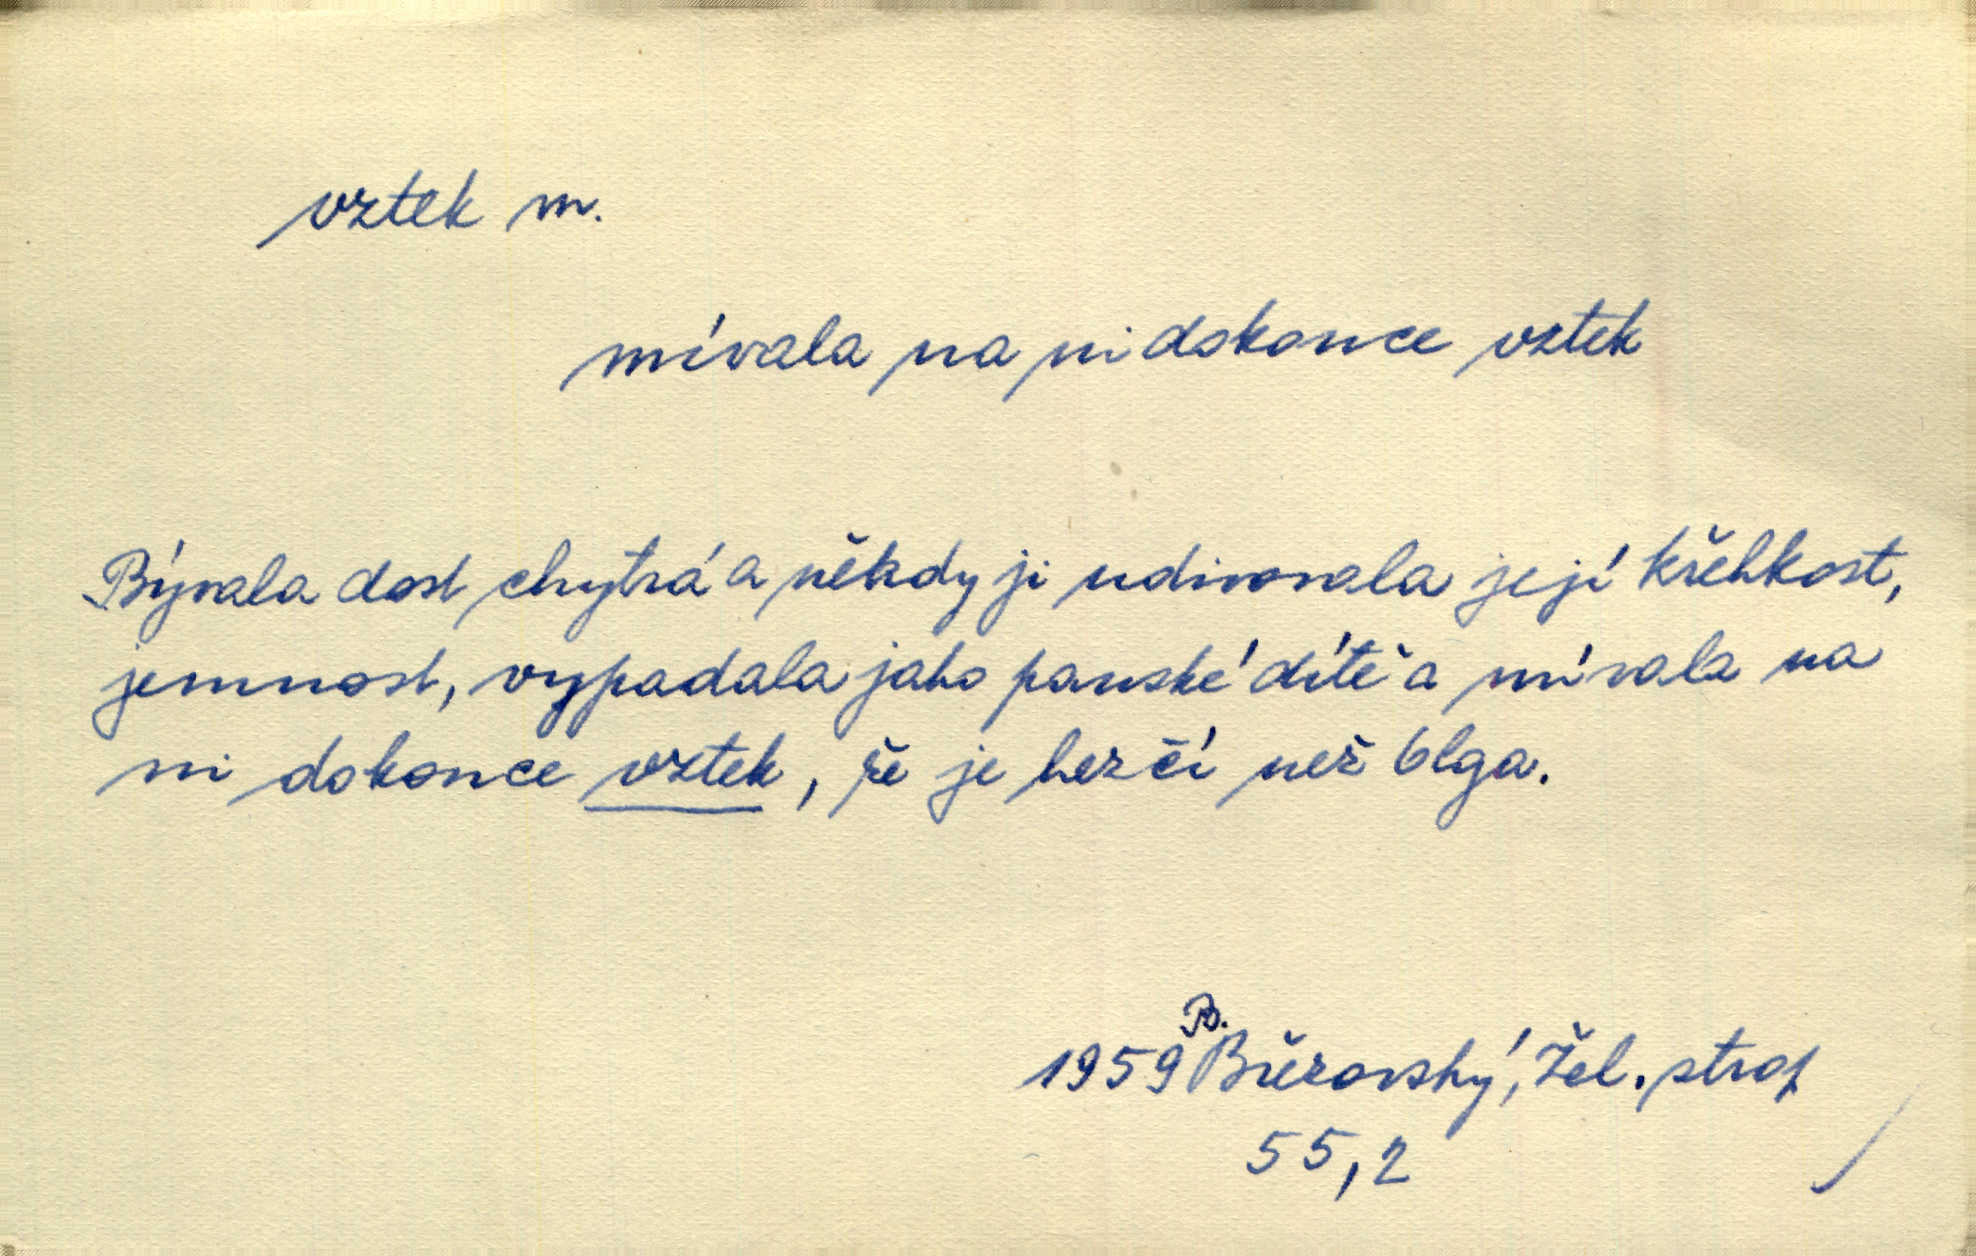 vztek m.
mívala na ni dokonce vztek
Bývala dost chytrá a někdy ji udivovala její křehkost,
jemnost, vypadala jako panské dítě a mívala na
ni dokonce vztek, že je hezčí než Olga.
B.
1959 Březovský, Žel. strop
55,2